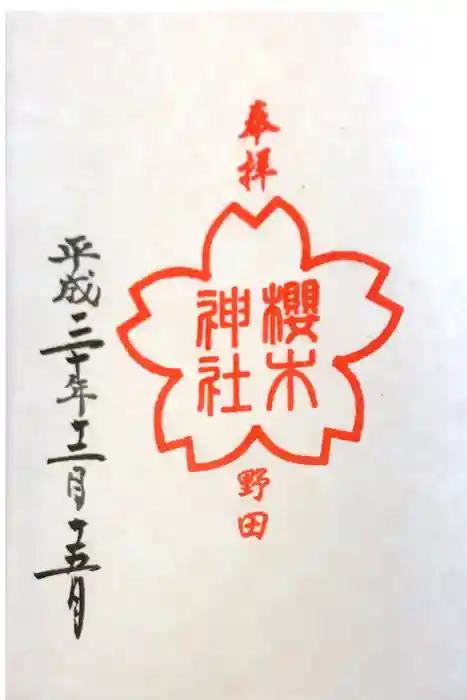 奉拝
櫻木
神社
野田
平成三十年十二月十五日